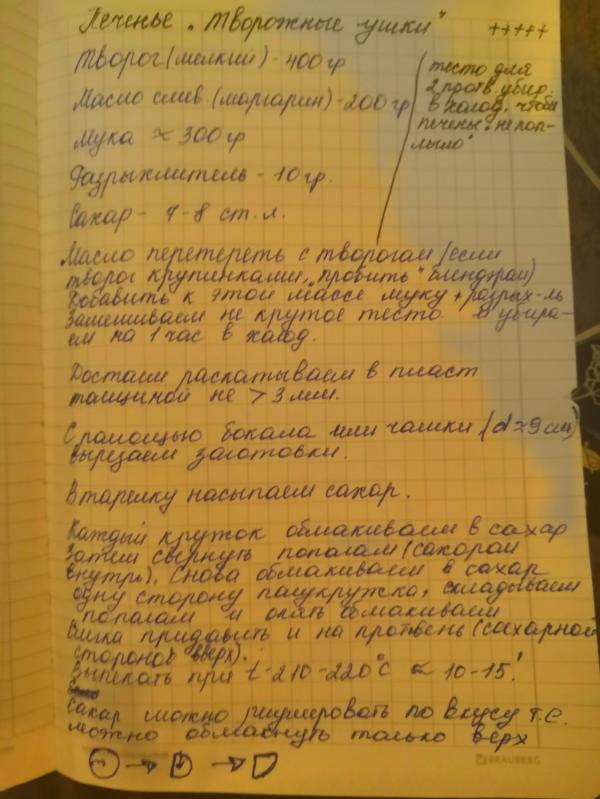 Печенье „Творожные ушки" +++++
Творог (мелкий) - 400 гр
Масло слив. (маргарин) - 200 гр
Мука ≈ 300 гр
Разрыхлитель - 10 гр.
Сахар - 7-8 ст. л.
тесто для
2 протв. убир.
в холод, чтобы
печенье „не поп-
лыло"
Масло перетереть с творогом (если
творог крупинками, „пробить" блендром)
Добавить к этой массе муку + разрых-ль
Замешиваем не крутое тесто и убира-
ем на 1 час в холод.
Достаем раскатываем в пласт
толщиной не > 3 мм.
С помощью бокала или чашки (d ≈ 9 см)
вырезаем заготовки.
В тарелку насыпаем сахар.
Каждый кружок обмакиваем в сахар
затем свернуть пополам (сахаром
внутрь). Снова обмакиваем в сахар
одну сторону полукружка, складываем
пополам и опять обмакиваем
Слегка придавить и на протвень (сахарной
стороной вверх).
Выпекать при t - 210 - 220°С ≈ 10-15'.
Сахар можно регулировать по вкусу т.е.
можно обмакнуть только верх
→ →
BRAUBERG